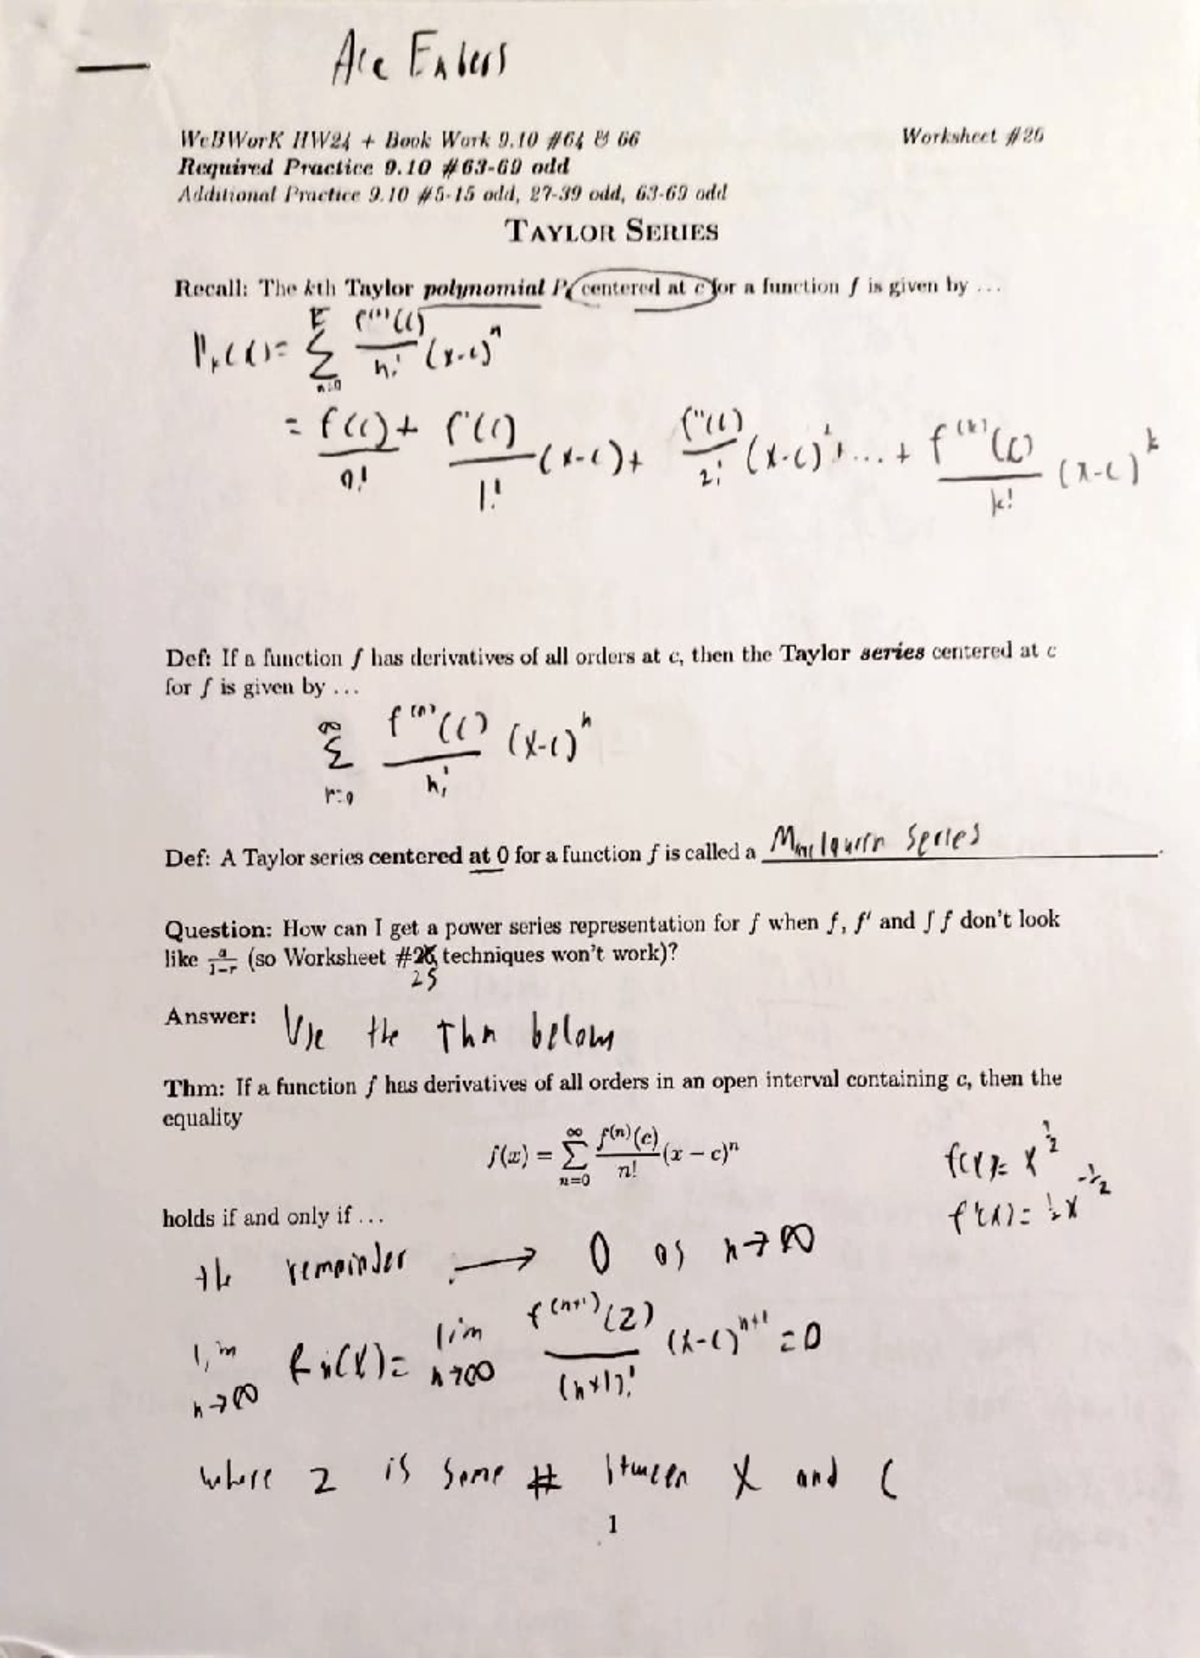 WeBWorK HW24 + Book Work 9.10 #64 & 66
Worksheet #26
Required Practice 9.10 #63-69 odd
Additional Practice 9.10 #5-15 odd, 27-39 odd, 63-69 odd
TAYLOR SERIES
Recall: The kth Taylor polynomial P_k centered at c for a function f is given by ...
P_k(x) = Σ_{n=0}^{k} f^{(n)}(c)/n! (x-c)^n
= f(c)/0! + f'(c)/1! (x-c) + f''(c)/2! (x-c)^2 + ... + f^{(k)}(c)/k! (x-c)^k
Def: If a function f has derivatives of all orders at c, then the Taylor series centered at c
for f is given by ...
Σ_{n=0}^{∞} f^{(n)}(c)/n! (x-c)^n
Def: A Taylor series centered at 0 for a function f is called a Maclaurin Series.
Question: How can I get a power series representation for f when f, f' and ∫ f don't look
like a/(1-r) (so Worksheet #25 techniques won't work)?
Answer: Use the Thm below
Thm: If a function f has derivatives of all orders in an open interval containing c, then the
equality
f(x) = Σ_{n=0}^{∞} f^{(n)}(c)/n! (x - c)^n
f(x) = x^{1/2}
f'(x) = 1/2 x^{-1/2}
holds if and only if ...
the remainder → 0 as n→∞
lim_{n→∞} Rn(x) = lim_{n→∞} f^{(n+1)}(z)/(n+1)! (x-c)^{n+1} = 0
where z is some # between x and c
1